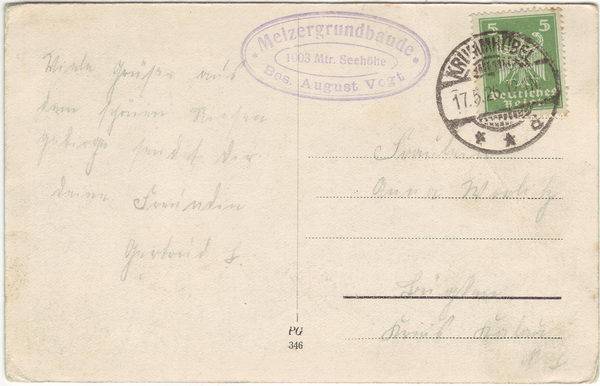 Melzergrundbaude
1003 Mtr. Seehöhe
Bes. August Vogt
5 5
Deutsches
Reich
KRUMMHÜBEL
17.5.
* * a
Viele Grüße aus
dem schönen Riesen
gebirge sendet Dir
deine Freundin
Gertrud
Fräulein
Anna
Kreis
PG
346